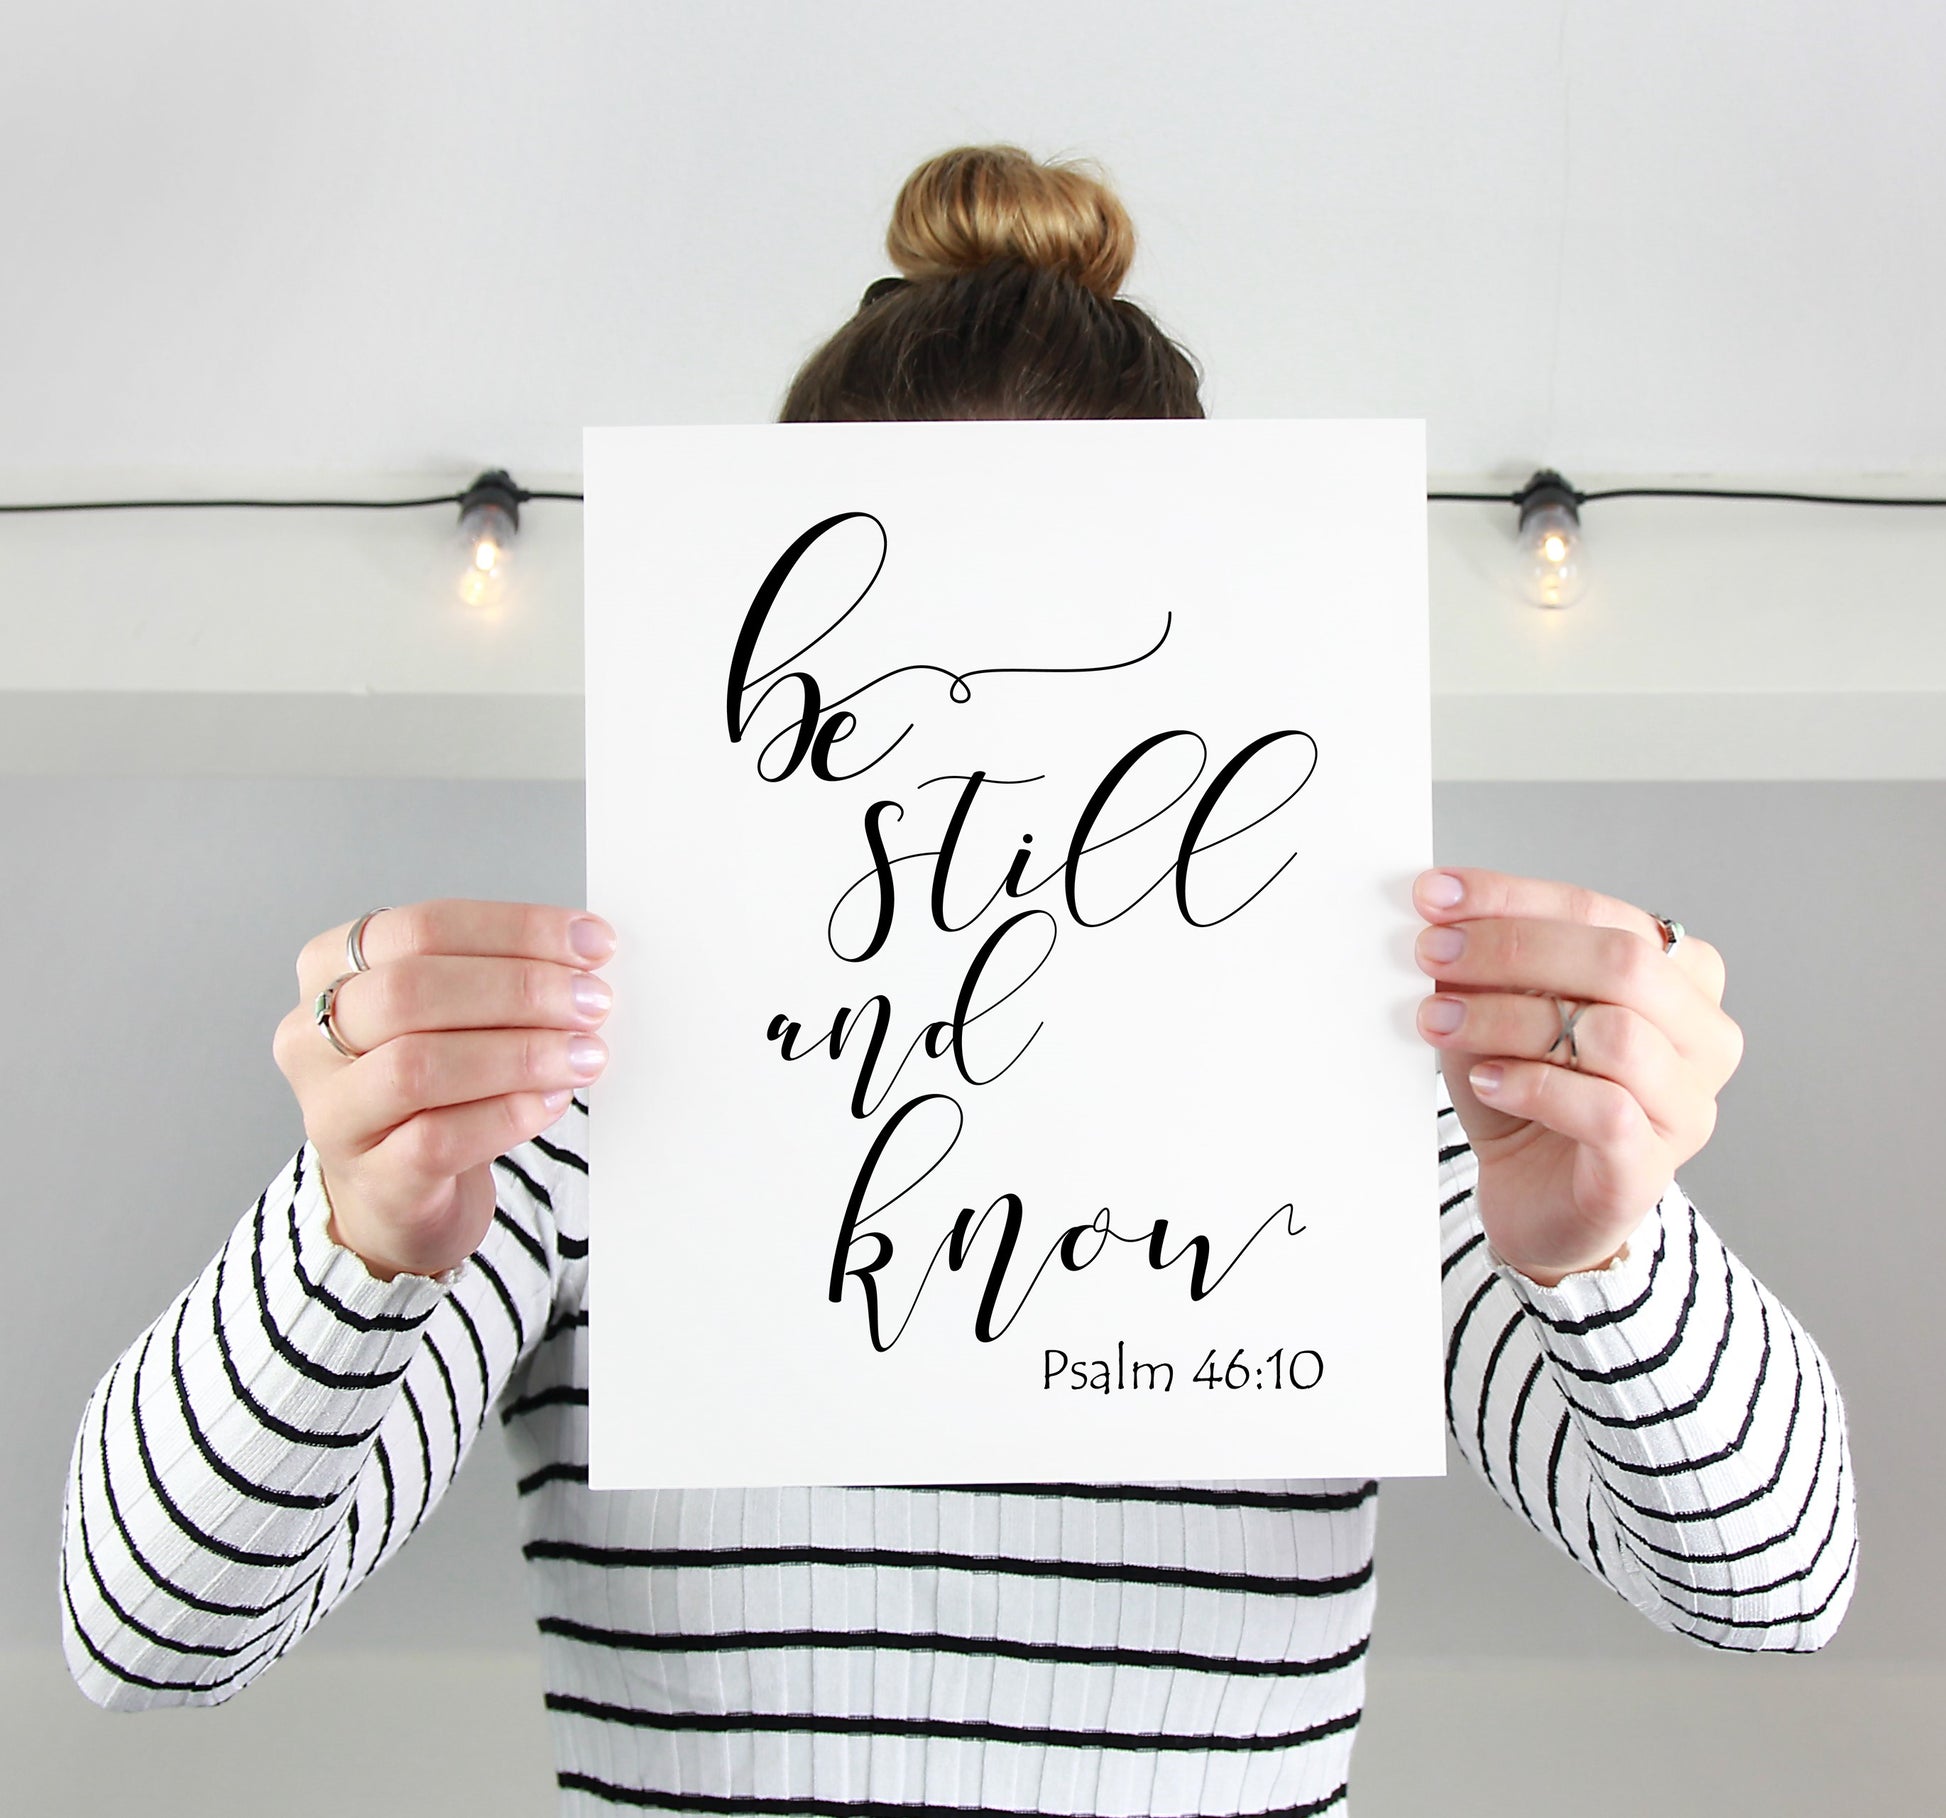 be
still
and
know
Psalm 46:10